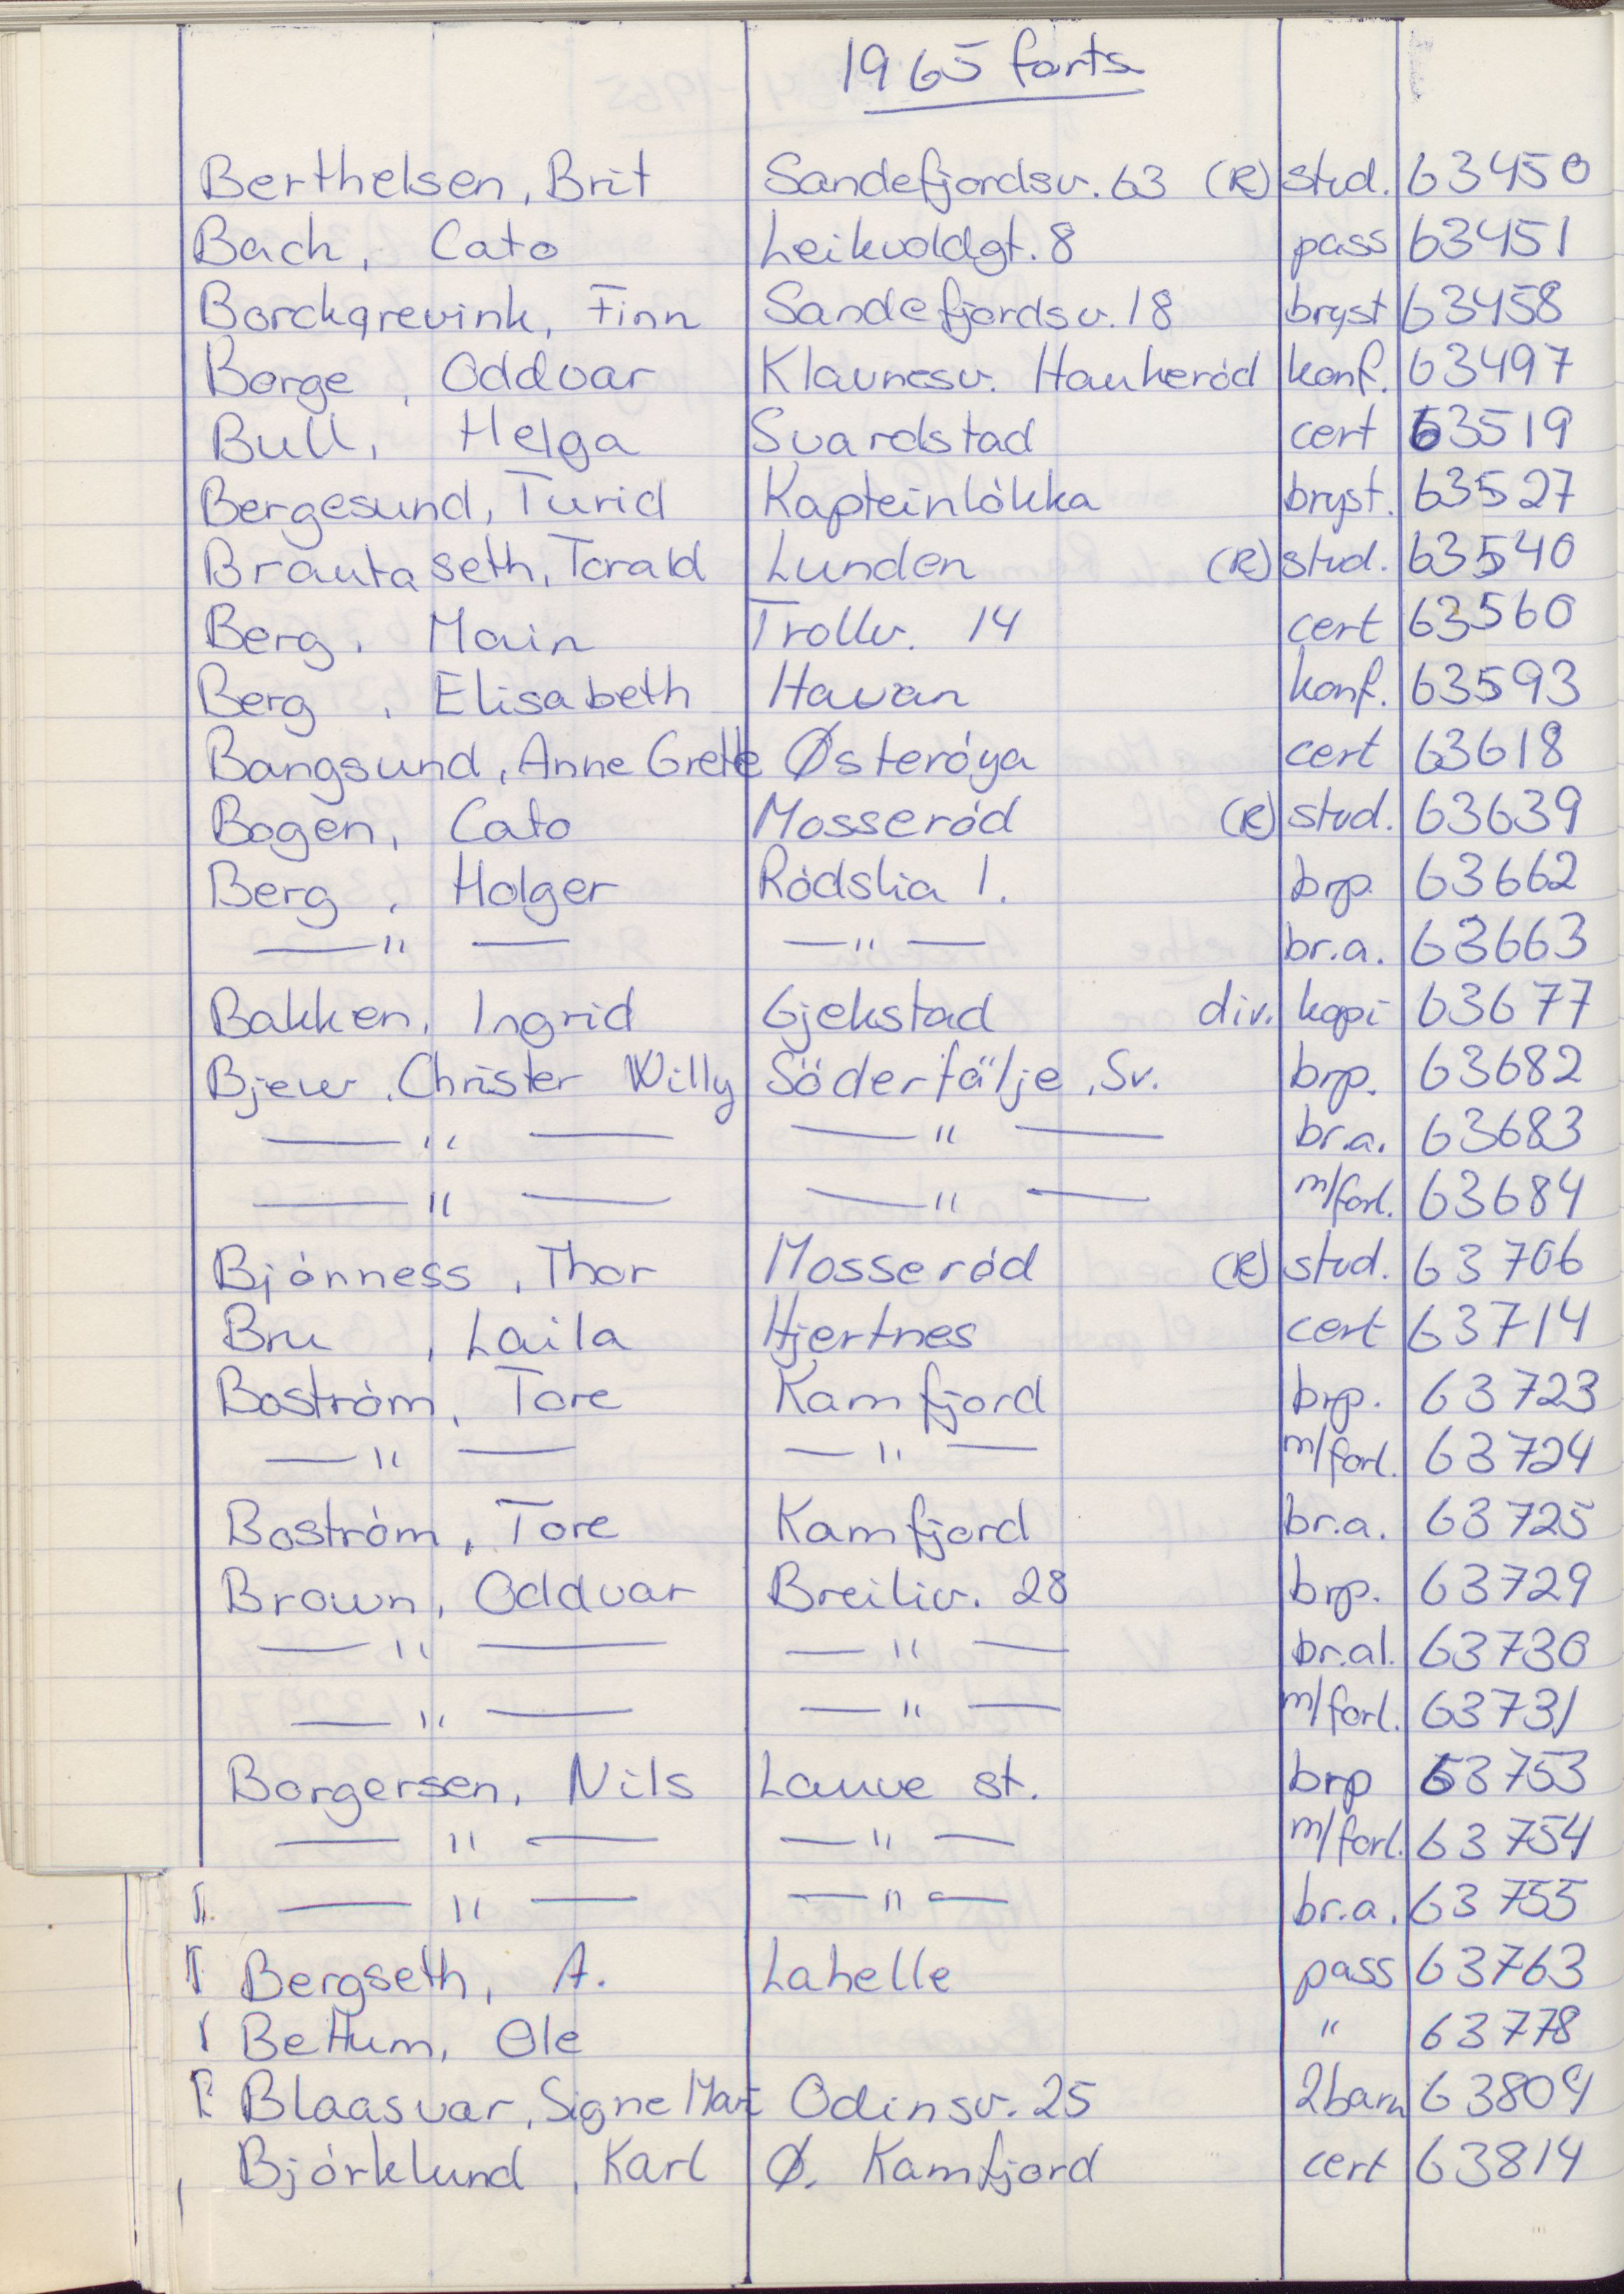 1965 forts
Berthelsen, Brit Sandefjordsv. 63 (R) stud. 63450
Bach, Cato Leikvoldgt. 8 pass 63451
Borckgrevink, Finn Sandefjordsv. 18 bryst 63458
Borge, Oddvar Klavnesv. Haukerød konf. 63497
Bull, Helga Svardstad cert 63519
Bergesund, Turid Kapteinløkka bryst. 63527
Brautaseth, Torald Lunden (R) stud. 63540
Berg, Main Trollv. 14 cert 63560
Berg, Elisabeth Havan konf. 63593
Bangsund, Anne Grethe Østerøya cert 63618
Bogen, Cato Mosserød (R) stud. 63639
Berg, Holger Rødslia 1. brp. 63662
— " — — " — br.a. 63663
Bakken, Ingrid Gjekstad div. kopi 63677
Bjew, Christer Willy Södertälje, Sv. brp. 63682
— " — — " — br.a. 63683
— " — — " — m/forl. 63684
Bjønness, Thor Mosserød (R) stud. 63706
Bru, Laila Hjertnes cert 63714
Bostrøm, Tore Kamfjord brp. 63723
— " — — " — m/forl. 63724
Bostrøm, Tore Kamfjord br.a. 63725
Brown, Oddvar Breiliv. 28 brp. 63729
— " — — " — br.al. 63730
— " — — " — m/forl. 63731
Borgersen, Nils Lauve st. brp 63753
— " — — " — m/forl. 63754
— " — — " — br.a. 63755
Bergseth, A. Lahelle pass 63763
Bettum, Ole " 63778
Blaasvær, Signe Mari Odinsv. 25 2barn 63809
Bjørklund, Karl Ø. Kamfjord cert 63814